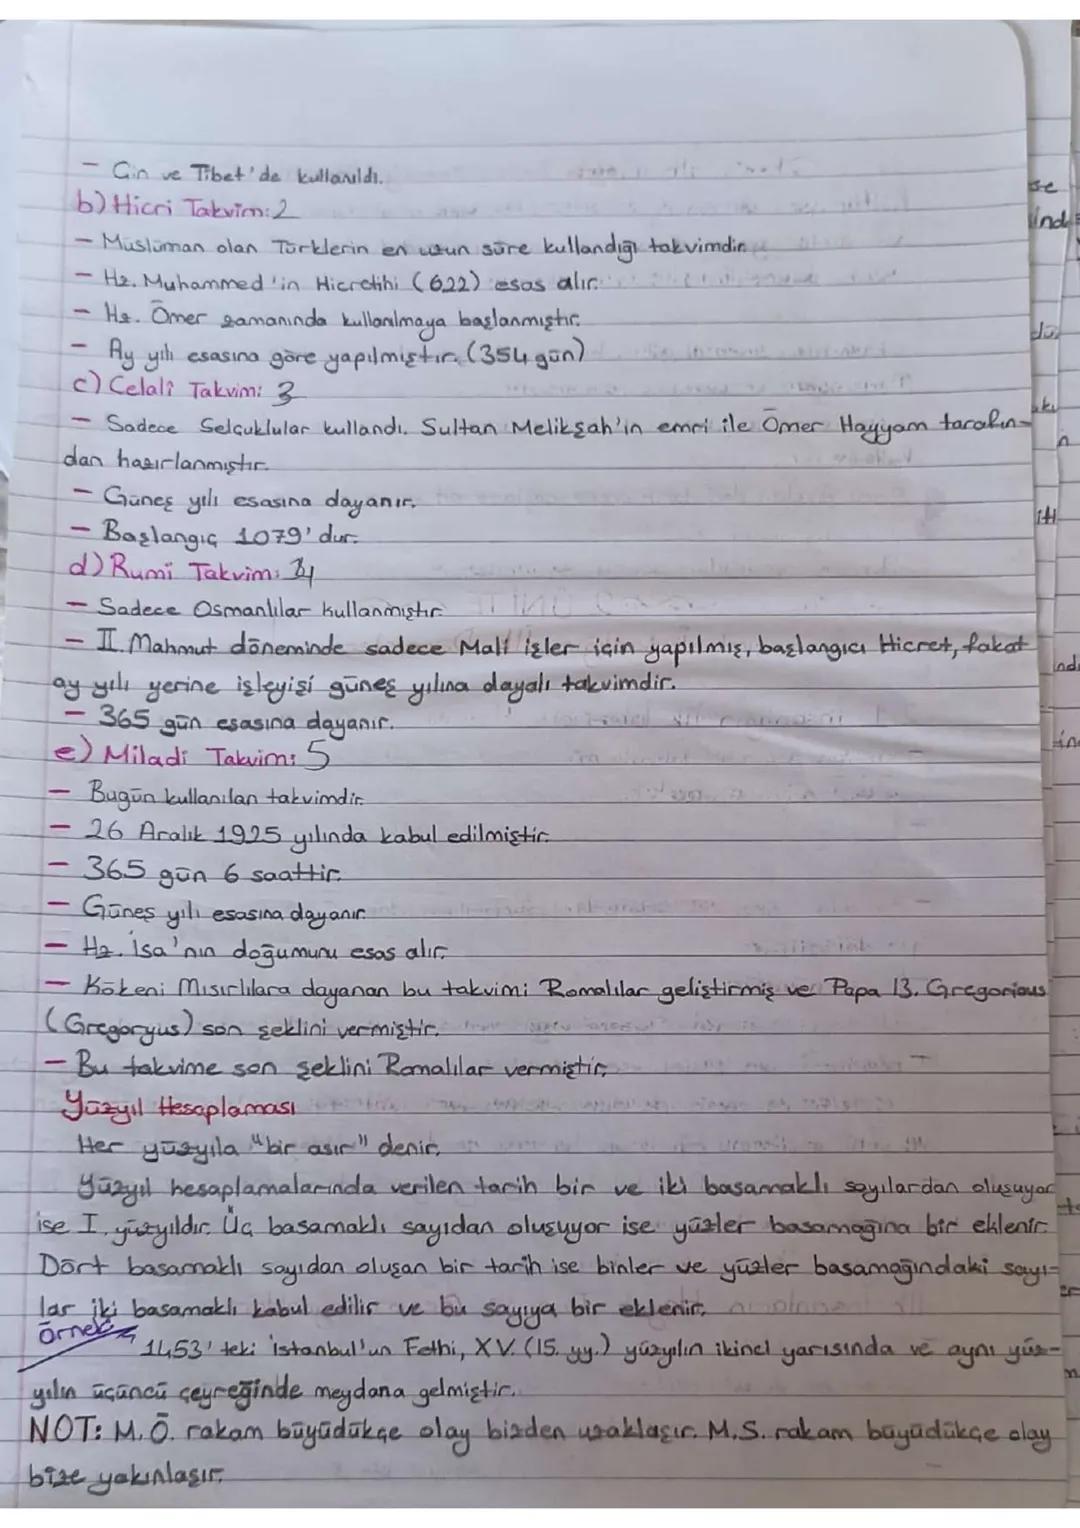 - Çin ve Tibet'de kullanıldı.
b) Hicri Takvim: 2
- Müslüman olan Türklerin en uzun süre kullandığı takvimdir.
- Hz. Muhammed'in Hicretini (622) esas alır.
- Hz. Ömer zamanında kullanılmaya başlanmıştır.
- Ay yılı esasına göre yapılmıştır. (354 gün)
c) Celali Takvim: 3
- Sadece Selçuklular kullandı. Sultan Melikşah'ın emri ile Ömer Hayyam tarafın-
dan hazırlanmıştır.
- Güneş yılı esasına dayanır.
- Başlangıç 1079'dur.
d) Rumi Takvim: 4
- Sadece Osmanlılar kullanmıştır.
- II. Mahmut döneminde sadece Mali işler için yapılmış, başlangıcı Hicret, fakat
ay yılı yerine işleyişi güneş yılına dayalı takvimdir.
- 365 gün esasına dayanır.
e) Miladi Takvim: 5
- Bugün kullanılan takvimdir.
- 26 Aralık 1925 yılında kabul edilmiştir.
- 365 gün 6 saattir.
- Güneş yılı esasına dayanır.
- Hz. İsa'nın doğumunu esas alır.
- Kökeni Mısırlılara dayanan bu takvimi Romalılar geliştirmiş ve Papa 13. Gregorious
(Gregoryus) son şeklini vermiştir.
- Bu takvime son şeklini Romalılar vermiştir.
Yüzyıl Hesaplaması
Her yüzyıla "bir asır" denir.
Yüzyıl hesaplamalarında verilen tarih bir ve iki basamaklı sayılardan oluşuyor
ise I. yüzyıldır. Üç basamaklı sayıdan oluşuyor ise yüzler basamağına bir eklenir.
Dört basamaklı sayıdan oluşan bir tarih ise binler ve yüzler basamağındaki sayı-
lar iki basamaklı kabul edilir ve bu sayıya bir eklenir.
Örnek
1453'teki İstanbul'un Fethi, XV. (15. yy.) yüzyılın ikinci yarısında ve aynı yüz-
yılın üçüncü çeyreğinde meydana gelmiştir.
NOT: M.Ö. rakam büyüdükçe olay bizden uzaklaşır. M.S. rakam büyüdükçe olay
bize yakınlaşır.